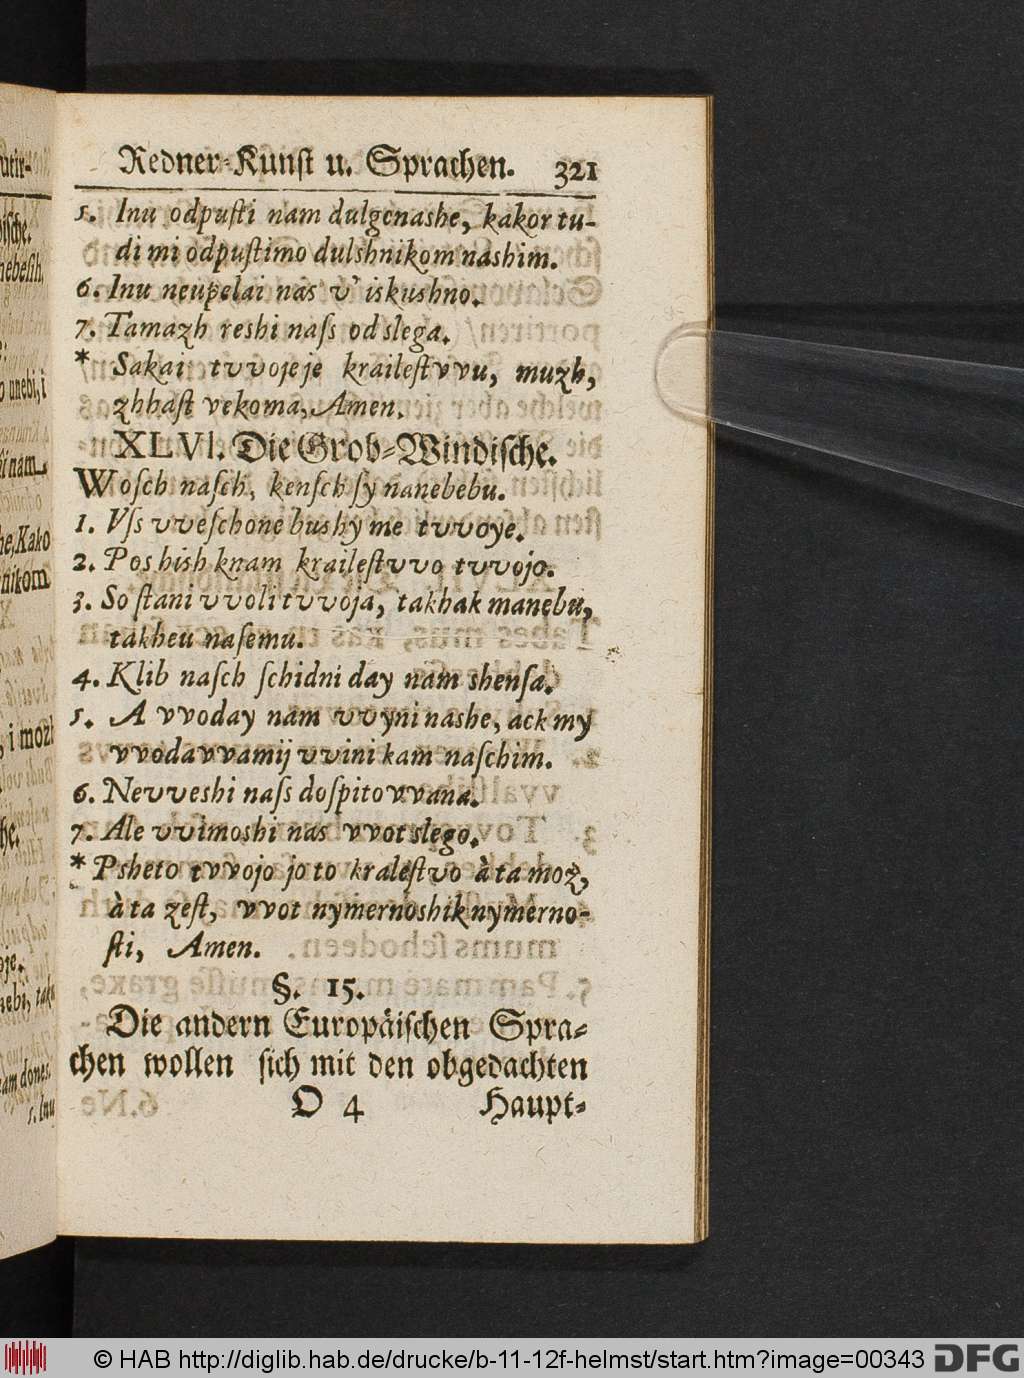 Redner-Kunst u. Sprachen. 321
5. Inu odpuſti nam dulgenashe, kakor tu-
di mi odpuſtimo dulshnikom nashim.
6. Inu neupelai nas v' iskushno.
7. Tamazh reshi naſs od slega.
* Sakai tvvoje je kraileſtvvu, muzh,
zhhaſt vekoma, Amen.
XLVI. Die Grob-Windiſche.
Woſch naſch, kenſch ſy nanebebu.
1. Vſs vveſchone bushy me tvvoye.
2. Pos hish knam kraileſtvvo tvvojo.
3. So ſtani vvoli tvvoja, takhak manebu,
takheu naſemu.
4. Klib naſch ſchidni day nam shenſa.
5. A vvoday nam vvyni nashe, ack my
vvodavvamij vvini kam naſchim.
6. Nevveshi naſs doſpitovvana.
7. Ale vvimoshi nas vvot slego.
* Psheto tvvojo jo to kraleſtvo à ta moz,
à ta zeſt, vvot nymernoshik nymerno-
ſti, Amen.
§. 15.
Die andern Europäiſchen Spra-
chen wollen ſich mit den obgedachten
O 4 Haupt-
© HAB http://diglib.hab.de/drucke/b-11-12f-helmst/start.htm?image=00343 DFG